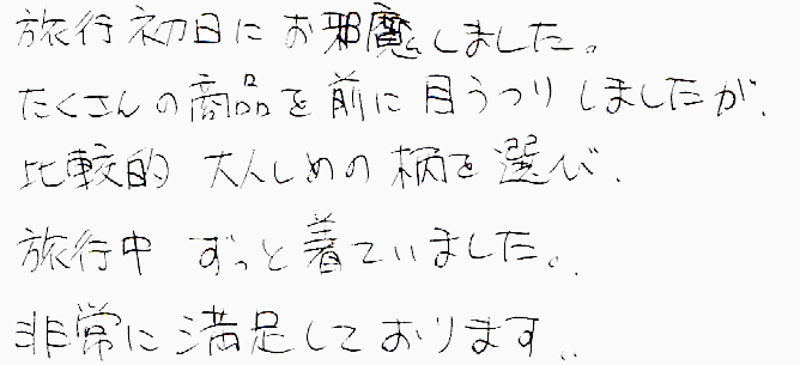 旅行初日にお邪魔しました。
たくさんの商品を前に目うつりしましたが、
比較的 大人しめの柄を選び、
旅行中 ずっと着ていました。
非常に満足しております。